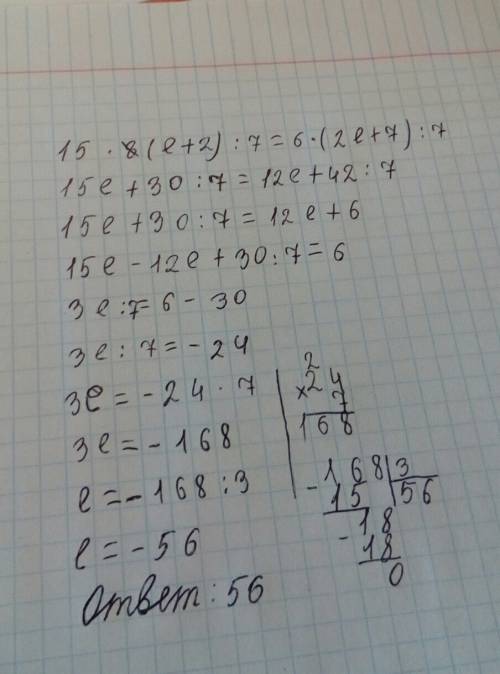 15 · (e+2) : 7 = 6 · (2e+7) : 7
15e + 30 : 7 = 12e + 42 : 7
15e + 30 : 7 = 12e + 6
15e - 12e + 30 : 7 = 6
3e : 7 = 6 - 30
3e : 7 = - 24
3e = - 24 · 7
3e = - 168
e = - 168 : 3
e = - 56
Ответ: 56
2
24
× 7
168
- 168 3
15 56
- 18
18
0